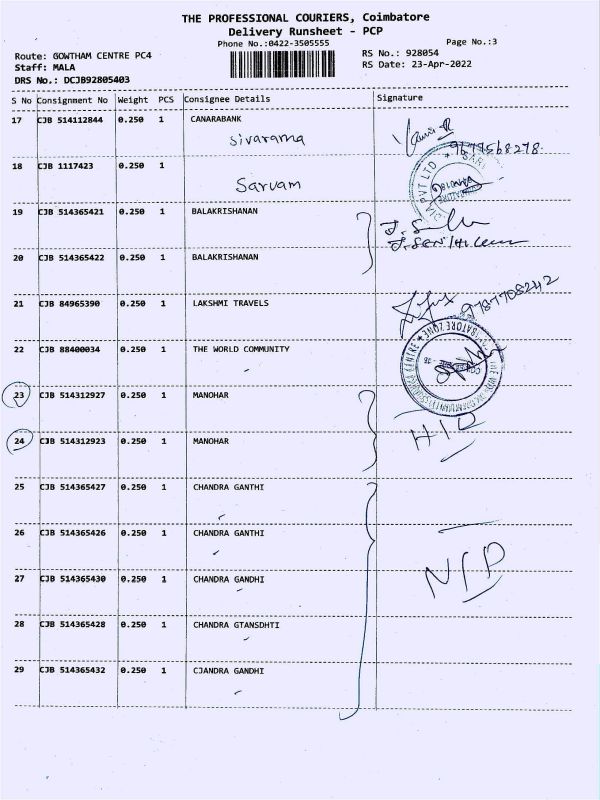 THE PROFESSIONAL COURIERS, Coimbatore
Delivery Runsheet - PCP
Phone No.:0422-3505555
Page No.:3
Route: GOWTHAM CENTRE PC4
RS No.: 928054
Staff: MALA
RS Date: 23-Apr-2022
DRS No.: DCJB92805403
S No Consignment No Weight PCS Consignee Details Signature
17 CJB 514112844 0.250 1 CANARABANK
sivarama
9677568278
18 CJB 1117423 0.250 1
Sarvam
PVT LTD
19 CJB 514365421 0.250 1 BALAKRISHANAN
20 CJB 514365422 0.250 1 BALAKRISHANAN
21 CJB 84965390 0.250 1 LAKSHMI TRAVELS
9787708242
22 CJB 88400034 0.250 1 THE WORLD COMMUNITY
23 CJB 514312927 0.250 1 MANOHAR
24 CJB 514312923 0.250 1 MANOHAR
25 CJB 514365427 0.250 1 CHANDRA GANTHI
26 CJB 514365426 0.250 1 CHANDRA GANTHI
NIP
27 CJB 514365430 0.250 1 CHANDRA GANDHI
28 CJB 514365428 0.250 1 CHANDRA GTANSDHTI
29 CJB 514365432 0.250 1 CJANDRA GANDHI